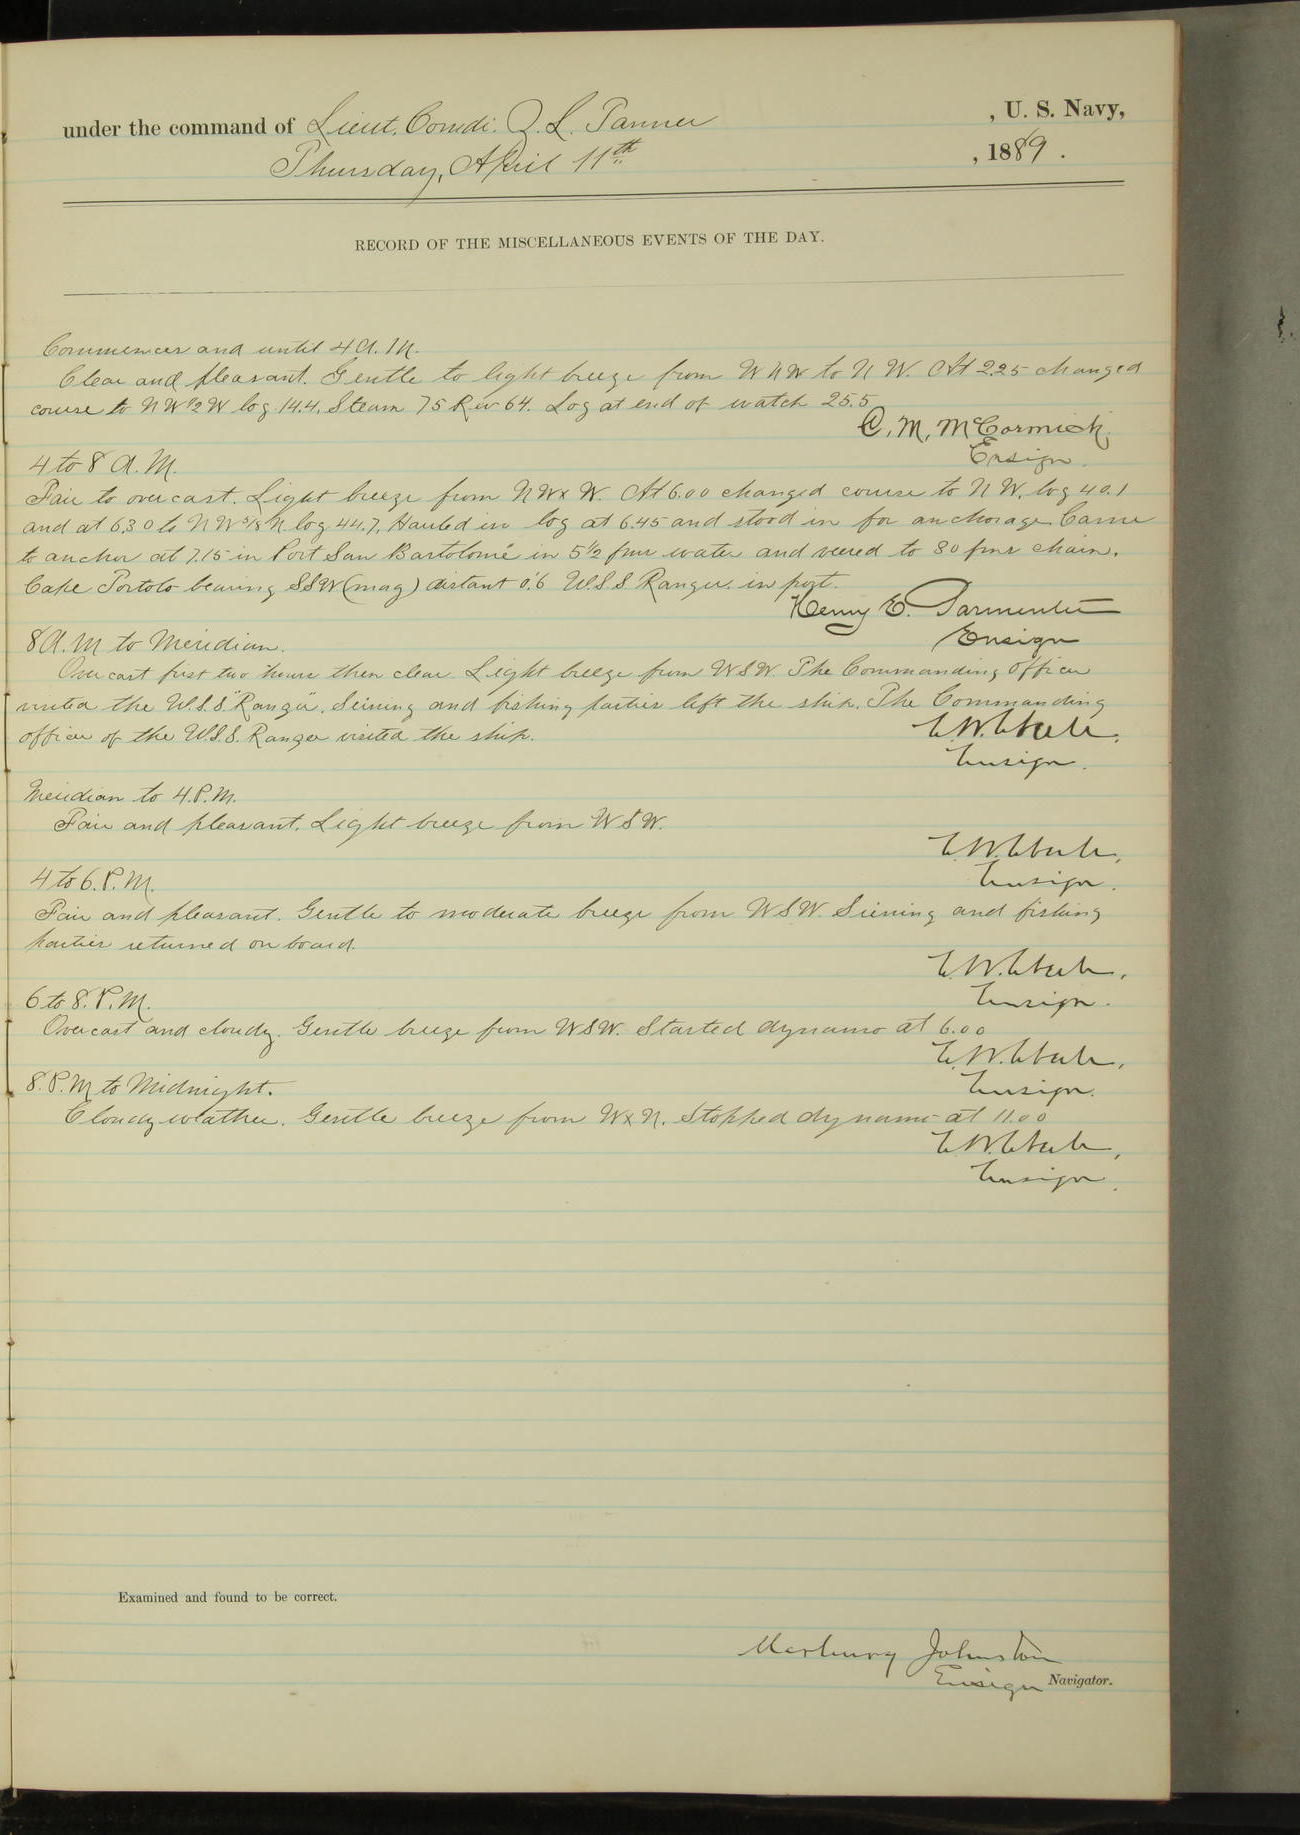 under the command of Lieut. Comdr. Z. L. Tanner , U. S. Navy,
Thursday, April 11th , 1889.
RECORD OF THE MISCELLANEOUS EVENTS OF THE DAY.
Commences and until 4 A. M.
Clear and pleasant. Gentle to light breeze from WNW to N W. At 2.25 changed
course to NW 1/2 W log 14.4. Steam 75 Rev 64. Log at end of watch 25.5
C. M. McCormick,
Ensign.
4 to 8 A. M.
Fair to overcast. Light breeze from NWxW. At 6.00 changed course to N W, log 40.1
and at 6.30 to NW 3/8 N log 44.7. Hauled in log at 6.45 and stood in for anchorage. Came
to anchor at 7.15 in Port San Bartolomé in 5 1/2 fms water and veered to 30 fms chain.
Cape Tortolo bearing SSW (mag) distant 0.'6 U.S.S Ranger in port.
Henry E. Parmenter
Ensign
8 A. M to Meridian.
Overcast first two hours then clear. Light breeze from WSW. The Commanding officer
visited the U.S.S. "Ranger". Seining and fishing parties left the ship. The Commanding
officer of the U.S.S. Ranger visited the ship.
E. W. Eberle.
Ensign.
Meridian to 4. P. M.
Fair and pleasant. Light breeze from WSW.
E. W. Eberle,
Ensign.
4 to 6. P. M.
Fair and pleasant. Gentle to moderate breeze from WSW. Seining and fishing
parties returned on board.
E. W. Eberle,
Ensign.
6 to 8. P. M.
Overcast and cloudy. Gentle breeze from WSW. Started dynamo at 6.00
E. W. Eberle,
Ensign.
8. P. M to Midnight.
Cloudy weather. Gentle breeze from WxN. Stopped dynamo at 11.00
E. W. Eberle,
Ensign.
Examined and found to be correct.
Marbury Johnston
Ensign Navigator.